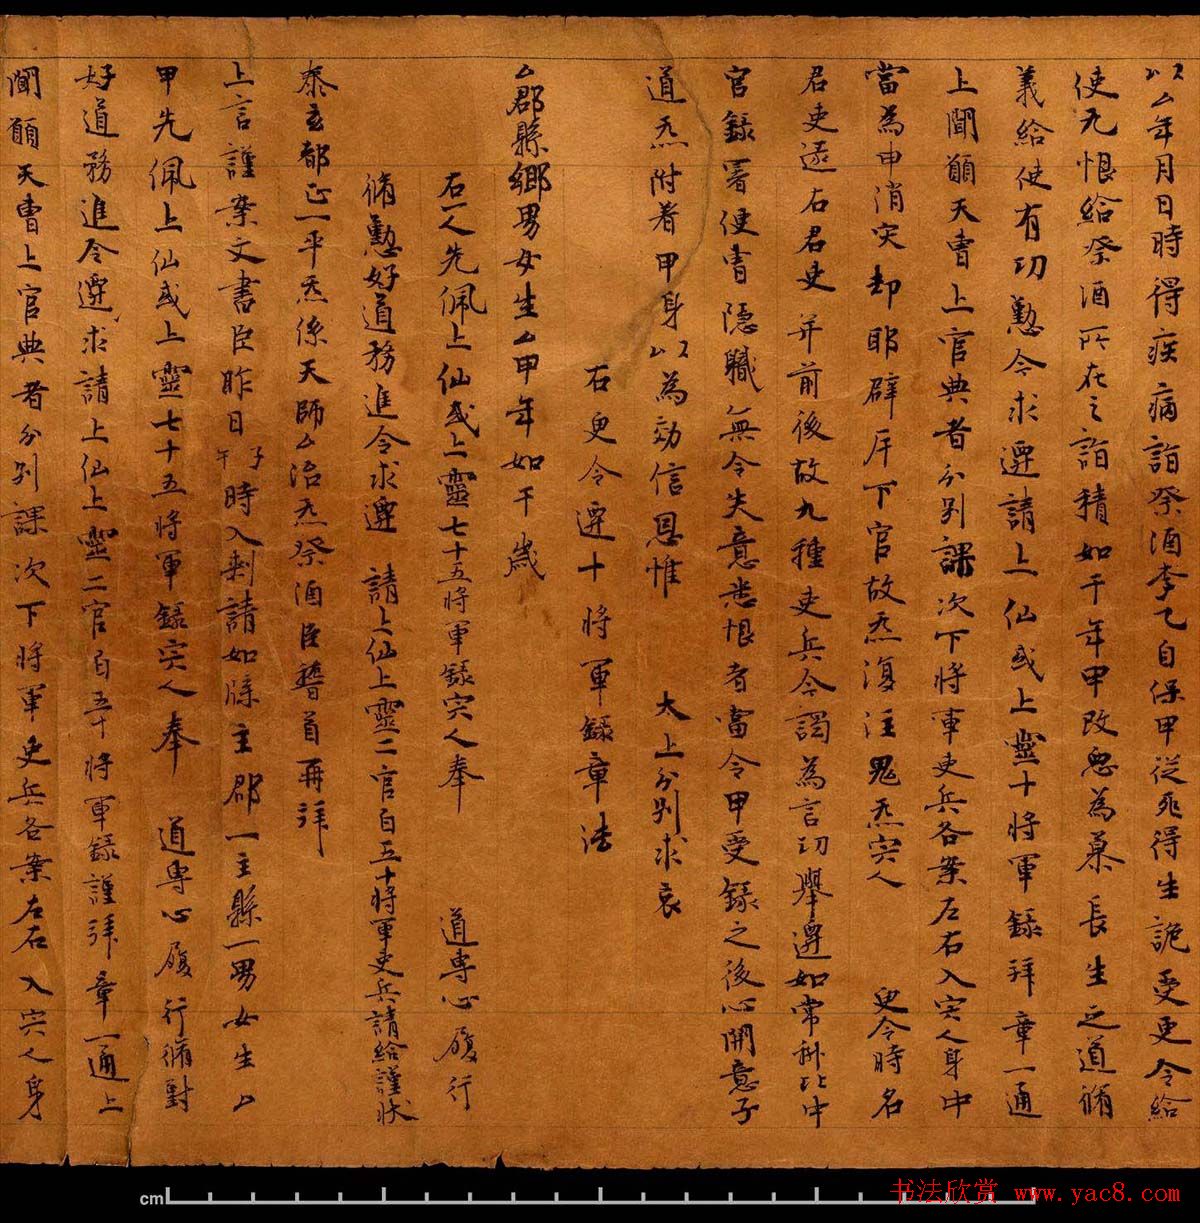 以厶年月日時得疾病詣祭酒李乙自保甲從死得生詭受更令給
使无恨給祭酒所在之詣積如干年甲改忽為慕長生之道脩
義給使有功懃令求遷請上仙或上靈十將軍籙拜章一通
上聞願天曹上官典者分別課次下將軍吏兵各案左右入宍人身中
當為申消灾却耶辟斥下官故炁復注鬼炁宍人 更令時名
君吏還右君吏并前後故九種吏兵今謁為言功舉遷如常科比中
官錄署便曹隱職無令失意恚恨者當令甲受籙之後心開意子
道炁附着甲身以為効信恩惟 太上分別求哀
右更令遷十將軍籙章法
厶郡縣鄉男女生厶甲年如干歲
右一人先佩上仙或上靈七十五將軍籙宍人奉 道專心履行
脩懃好道務進令求遷 請上仙上靈二官百五十將軍吏兵請給謹狀
泰玄都正一平炁係天師厶治炁祭酒臣稽首再拜
上言謹案文書臣昨日子午時入剌請如牒主郡一主縣一男女生厶
甲先佩上仙或上靈七十五將軍籙宍人奉 道專心履行脩對
好道務進令遷求請上仙上靈二官百五十將軍籙謹拜章一通上
聞願天曹上官典者分別課次下將軍吏兵各案左右入宍人身
cm
书法欣赏 www.yac8.com